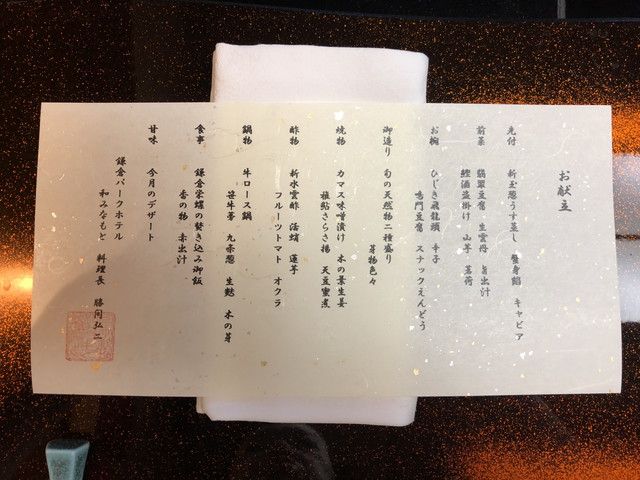 お献立
先付 新玉葱うす蒸し 蟹身餡 キャビア
前菜 翡翠豆腐 生雲丹 旨出汁
鰹酒盗掛け 山芋 茗荷
お椀 ひじき飛龍頭 辛子
鳴門豆腐 スナックえんどう
御造り 旬の天然物二種盛り
芽物色々
焼物 カマス味噌漬け 木の葉生姜
稚鮎さらさ揚 天豆蜜煮
酢物 新水雲酢 活蛸 蓮芋
フルーツトマト オクラ
鍋物 牛ロース鍋
笹牛蒡 九条葱 生麩 木の芽
食事 鎌倉栄螺の炊き込み御飯
香の物 赤出汁
甘味 今月のデザート
鎌倉パークホテル
和みなもと 料理長 勝間弘二